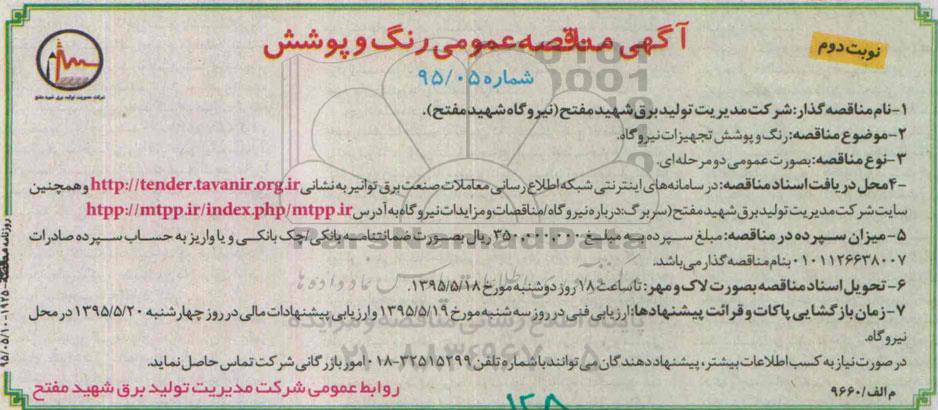 نوبت دوم
آگهی مناقصه عمومی رنگ و پوشش
شماره ۹۵/۰۵
شرکت مدیریت تولید برق شهید مفتح
۱-نام مناقصه گذار: شرکت مدیریت تولید برق شهید مفتح (نیروگاه شهید مفتح).
۲-موضوع مناقصه: رنگ و پوشش تجهیزات نیروگاه.
۳-نوع مناقصه: بصورت عمومی دو مرحله ای.
-۴محل دریافت اسناد مناقصه: در سامانه های اینترنتی شبکه اطلاع رسانی معاملات صنعت برق توانیر به نشانی http://tender.tavanir.org.ir و همچنین
سایت شرکت مدیریت تولید برق شهید مفتح (سربرگ: درباره نیروگاه/مناقصات و مزایدات نیروگاه به آدرس htpp://mtpp.ir/index.php/mtpp.ir
۵-میزان سپرده در مناقصه: مبلغ سپرده به مبلغ ۳۵۰،۰۰۰،۰۰۰ ریال بصورت ضمانتنامه بانکی /چک بانکی و یا واریز به حساب سپرده صادرات
۰۱۰۱۱۲۶۶۳۸۰۰۷ بنام مناقصه گذار می باشد.
۶- تحویل اسناد مناقصه بصورت لاک و مهر: تا ساعت ۱۸ روز دوشنبه مورخ ۱۳۹۵/۵/۱۸.
۷-زمان بازگشایی پاکات و قرائت پیشنهادها: ارزیابی فنی در روز سه شنبه مورخ ۱۳۹۵/۵/۱۹ و ارزیابی پیشنهادات مالی در روز چهارشنبه ۱۳۹۵/۵/۲۰ در محل
نیروگاه.
در صورت نیاز به کسب اطلاعات بیشتر، پیشنهاد دهندگان می توانند با شماره تلفن ۳۲۵۱۵۲۹۹-۰۱۸ امور بازرگانی شرکت تماس حاصل نماید.
م الف/۹۶۶۰
روابط عمومی شرکت مدیریت تولید برق شهید مفتح
روزنامه مناقصه -۱۹۲۵-۹۵/۰۵/۱۰
۱۲۵
ParsNamadData
پایگاه اطلاع رسانی مناقصه و مزایده
۰۲۱-۸۸۳۴۹۶۷۰-۵